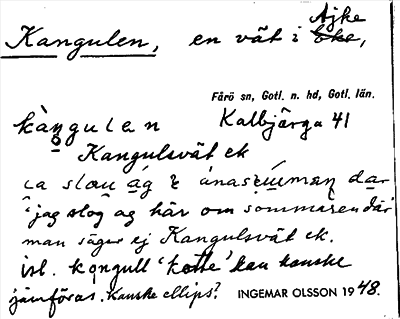 Kangulen, en vät i Ajke,
Fårö sn, Gotl. n. hd, Gotl. län.
kàngulen Kalbjärga 41
Kangulsvät ek
ca slou ag
'jag slog ag här om sommaren där
man säger ej Kangulsvät ek.
isl. kǫngull 'kotte' kan kanske
jämföras. Kanske ellips? INGEMAR OLSSON 1948.